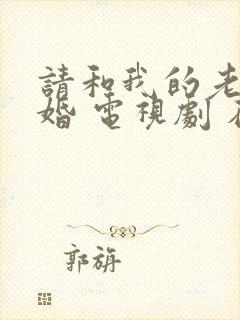 請和我的老
婚 電視劇
郭旃